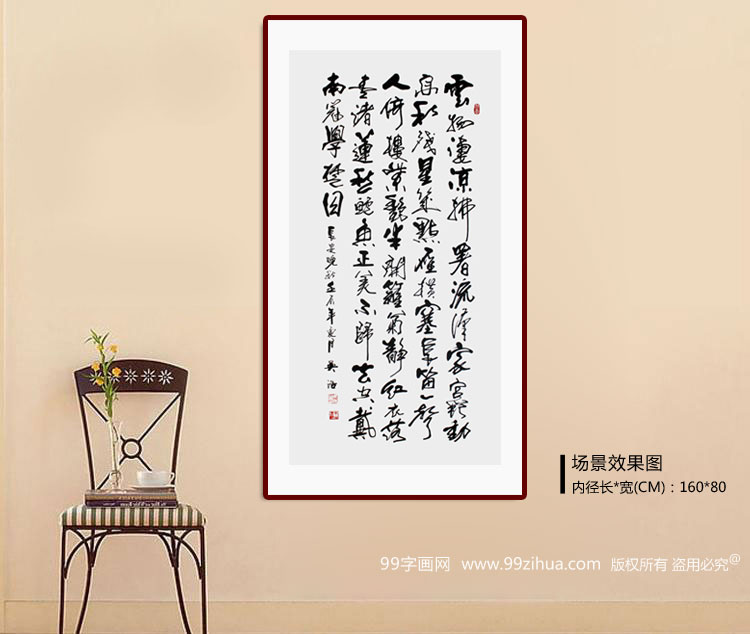 雲物凄涼拂署流漢家宮闕動
高秋殘星幾點雁橫塞長笛一聲
人倚樓紫艷半開籬菊靜紅衣落
盡渚蓮愁鱸魚正美不歸去空戴
南冠學楚囚
長安晚秋
场景效果图
内径长*宽(CM)：160*80
99字画网 www.99zihua.com 版权所有 盗用必究@